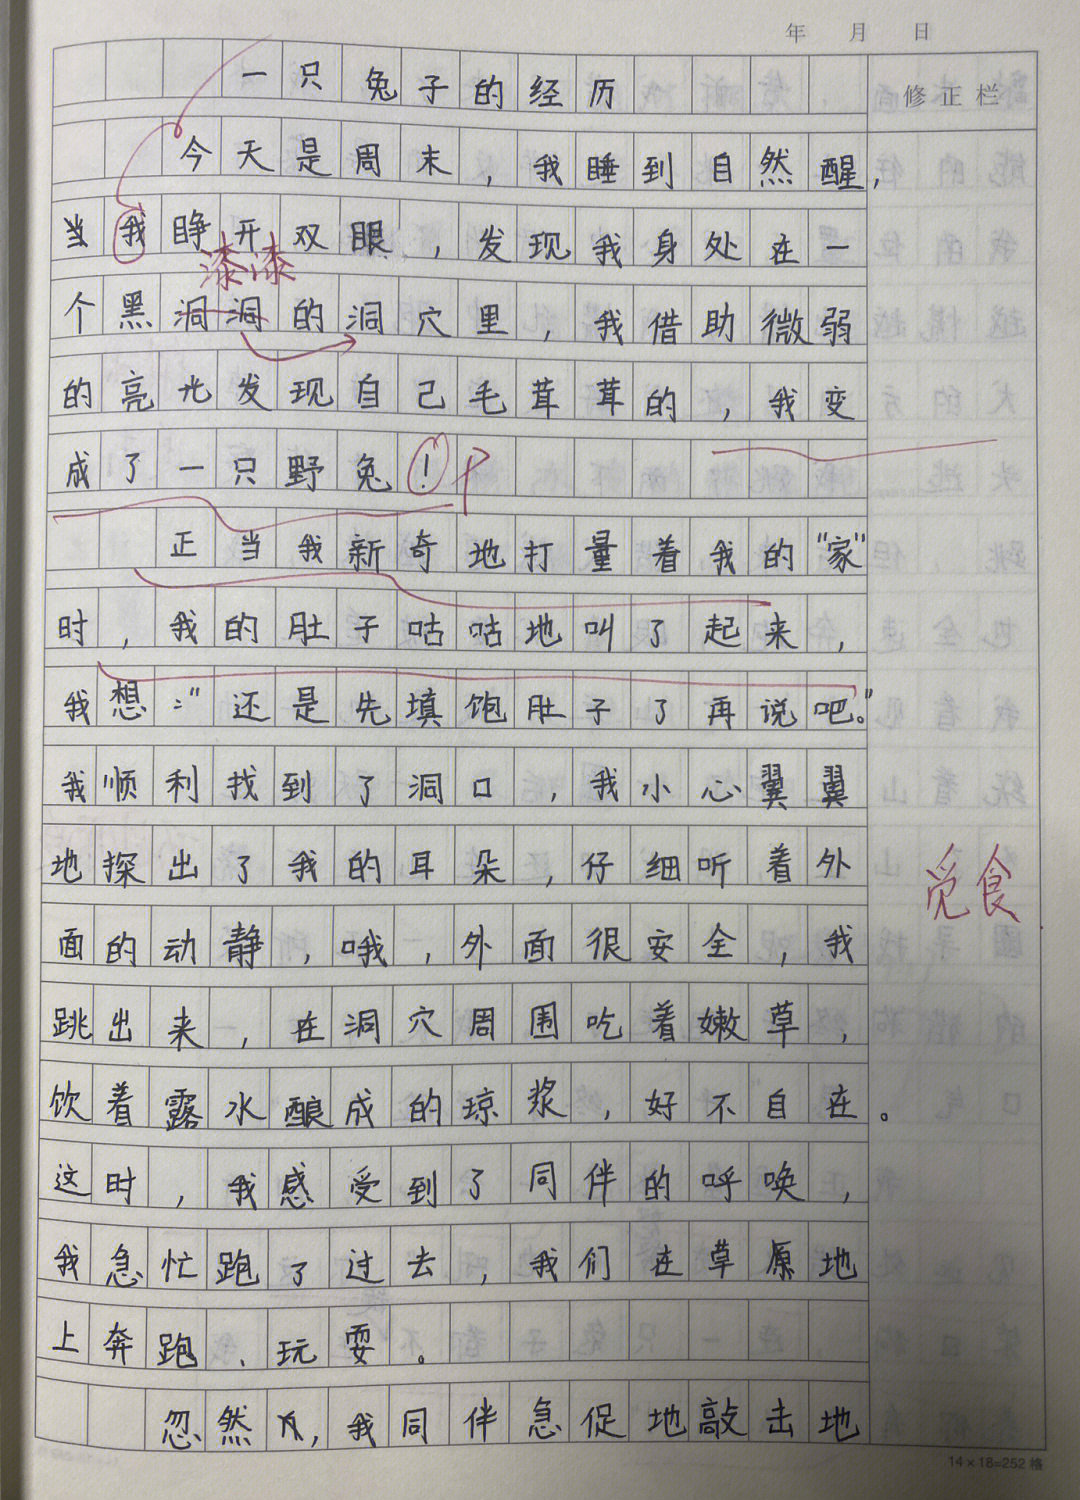 年 月 日
一只兔子的经历
修正栏
今天是周末，我睡到自然醒，
当我睁开双眼，发现我身处在一
漆漆
个黑洞洞的洞穴里，我借助微弱
的亮光发现自己毛茸茸的，我变
成了一只野兔！
正当我新奇地打量着我的“家”
时，我的肚子咕咕地叫了起来，
我想：“还是先填饱肚子了再说吧。”
我顺利找到了洞口，我小心翼翼
地探出了我的耳朵，仔细听着外
觅食
面的动静，哦，外面很安全，我
跳出来，在洞穴周围吃着嫩草，
饮着露水酿成的琼浆，好不自在。
这时，我感受到了同伴的呼唤，
我急忙跑了过去，我们在草原地
上奔跑、玩耍。
忽然，我同伴急促地敲击地
14×18=252格